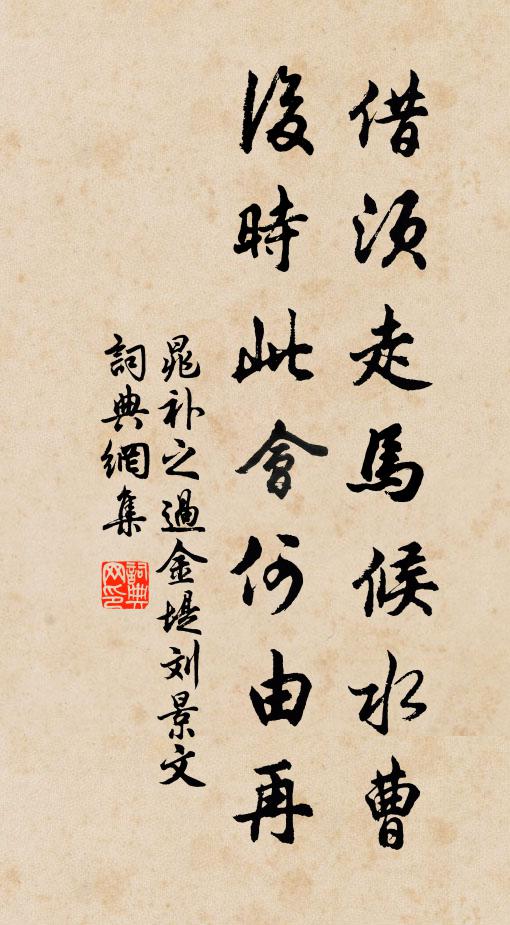 借須走馬候水曹
後時此會何由再
晁补之過金堤刘景文
詞典網集
詞典网印